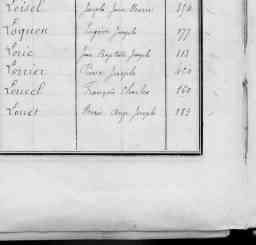 Loisel Joseph Jean Marie 374
Loquen Eugène Joseph 177
Loric Jean Baptiste Joseph 113
Lorrier Pierre Joseph 450
Louel François Charles 160
Louet Marie Ange Joseph 183